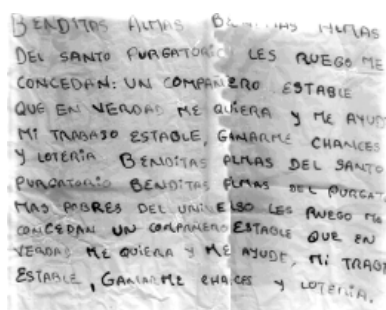 BENDITAS ALMAS BENDITAS ALMAS
DEL SANTO PURGATORIO LES RUEGO ME
CONCEDAN: UN COMPAÑERO ESTABLE
QUE EN VERDAD ME QUIERA Y ME AYUD
MI TRABAJO ESTABLE, GANARME CHANCES
Y LOTERIA BENDITAS ALMAS DEL SANTO
PURGATORIO BENDITAS ALMAS DEL PURGATO
MAS POBRES DEL UNIVELSO LES RUEGO ME
CONCEDAN UN COMPAÑERO ESTABLE QUE EN
VERDAD ME QUIERA Y ME AYUDE, MI TRABA
ESTABLE, GANARME CHANCES Y LOTERIA.